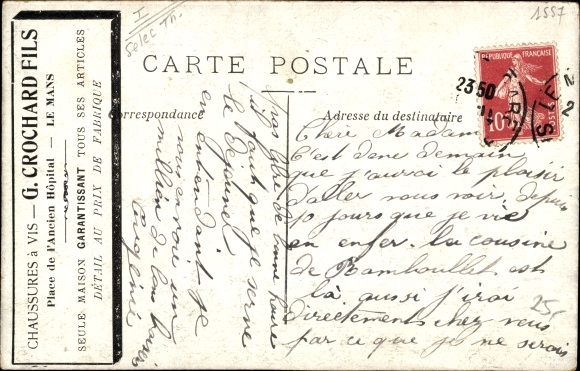 I
Selec Th.
1557
CHAUSSURES à VIS — G. CROCHARD FILS
Place de l'Ancien Hôpital — LE MANS
SEULE MAISON GARANTISSANT TOUS SES ARTICLES
DÉTAIL AU PRIX DE FABRIQUE
CARTE POSTALE
Correspondance
Adresse du destinataire
REPUBLIQUE FRANÇAISE
10
POSTES
23 50
Chère Madame
C'est donc demain
que j'aurai le plaisir
d'aller vous voir, depuis
10 jours que je vis
en enfer. la cousine
de Rambouillet est
là aussi j'irai
directement chez vous
par ce que je ne serais
25,-
pas libre de bonne heure
il faut que je serve
le déjeuner
en attendant je
vous envoie un
million de bons baisers
Eugénie